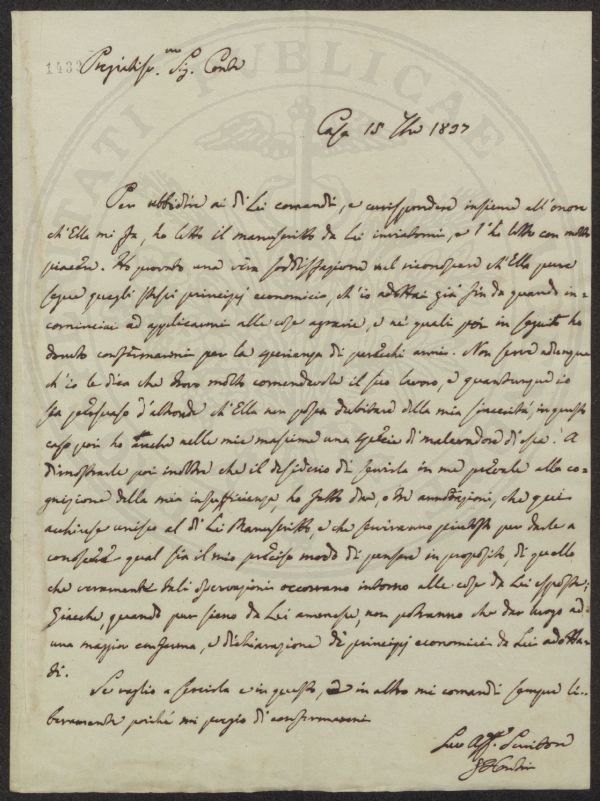 1432
Pregiatiss.mo Sig. Conte
Casa 15 1827
Per ubbidire ai di Lei comandi, e corrispondere insieme all'onore
ch'Ella mi fa, ho letto il manuscritto da Lei inviatomi, e l'ho letto con molto
piacere. Ho provato una vera soddisfazione nel riconoscere ch'Ella pure
segue quegli stessi principj economici, ch'io adottai già fin da quando in-
cominciai ad applicarmi alle cose agrarie, e nei quali poi in seguito ho
dovuto confermarmi per la sperienza di parecchi anni. Non serve adunque
ch'io le dica che trovo molto comendevole il suo lavoro, e quantunque io
sia persuaso d'altronde ch'Ella non possa dubitare della mia sincerità, in questo
caso poi ho anche nelle mie massime una specie di mallevadore di essa. A
dimostrarle poi inoltre che il desiderio di servirla in me prevale alla co-
gnizione della mia insufficienza, ho fatto due, o tre annotazioni, che qui
acchiuse unisco al di Lei Manuscritto, e che serviranno piuttosto per darle a
conoscere qual sia il mio preciso modo di pensare in proposito, di quello
che veramente tali osservazioni occorrano intorno alle cose da Lei esposte;
Giacchè, quando pur sieno da Lei ammesse, non potranno che dar luogo ad
una maggior conferma, e dichiarazione di principj economici da Lei adotta-
ti.
Se vaglio a servirla e in questo, e in altro mi comandi sempre li-
beramente poichè mi pregio di confermarmi
Suo Aff. Servitore